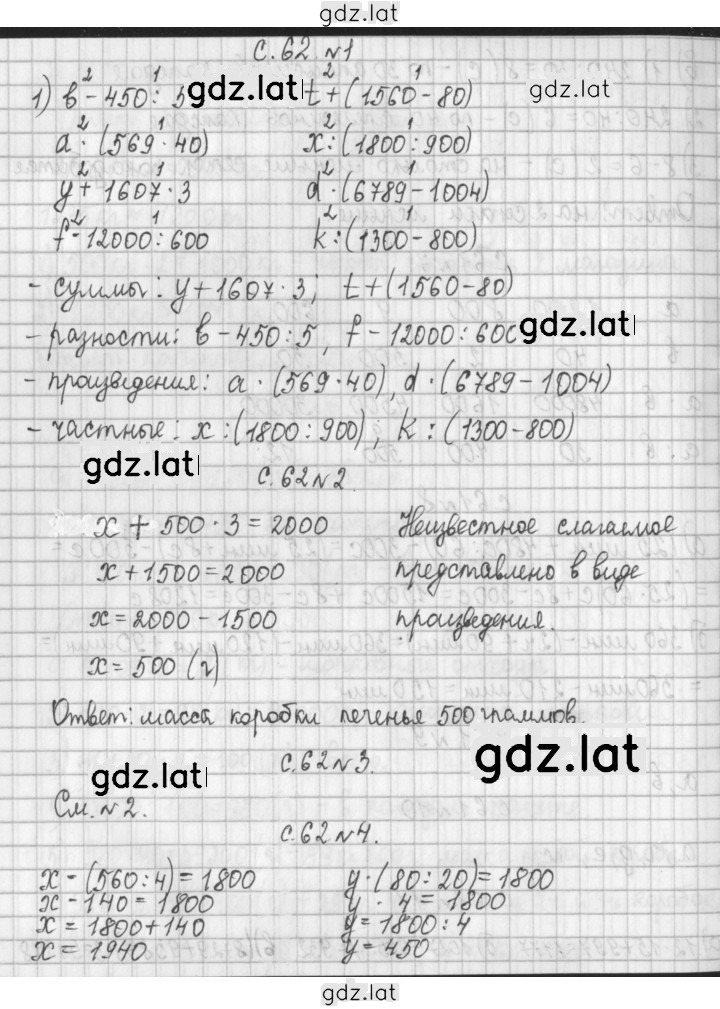 gdz.lat
с. 62 №1
2 1 2 1
1) в - 450 : 5 t + (1560 - 80)
gdz.lat gdz.lat
2 1 2 1
а · (569 · 40) х : (1800 : 900)
2 1 2 1
у + 1607 · 3 d · (6789 - 1004)
2 1 2 1
f - 12000 : 600 k : (1300 - 800)
- суммы: у + 1607 · 3; t + (1560 - 80)
- разности: в - 450 : 5, f - 12000 : 600
gdz.lat
- произведения: а · (569 · 40), d · (6789 - 1004)
- частные: х : (1800 : 900), k : (1300 - 800)
gdz.lat
с. 62 №2.
х + 500 · 3 = 2000 Неизвестное слагаемое
х + 1500 = 2000 представлено в виде
х = 2000 - 1500 произведения.
х = 500 (г)
Ответ: масса коробки печенья 500 граммов.
с. 62 №3.
gdz.lat gdz.lat
См. №2.
с. 62 №4.
х - (560 : 4) = 1800 у · (80 : 20) = 1800
х - 140 = 1800 у · 4 = 1800
х = 1800 + 140 у = 1800 : 4
х = 1940 у = 450
gdz.lat